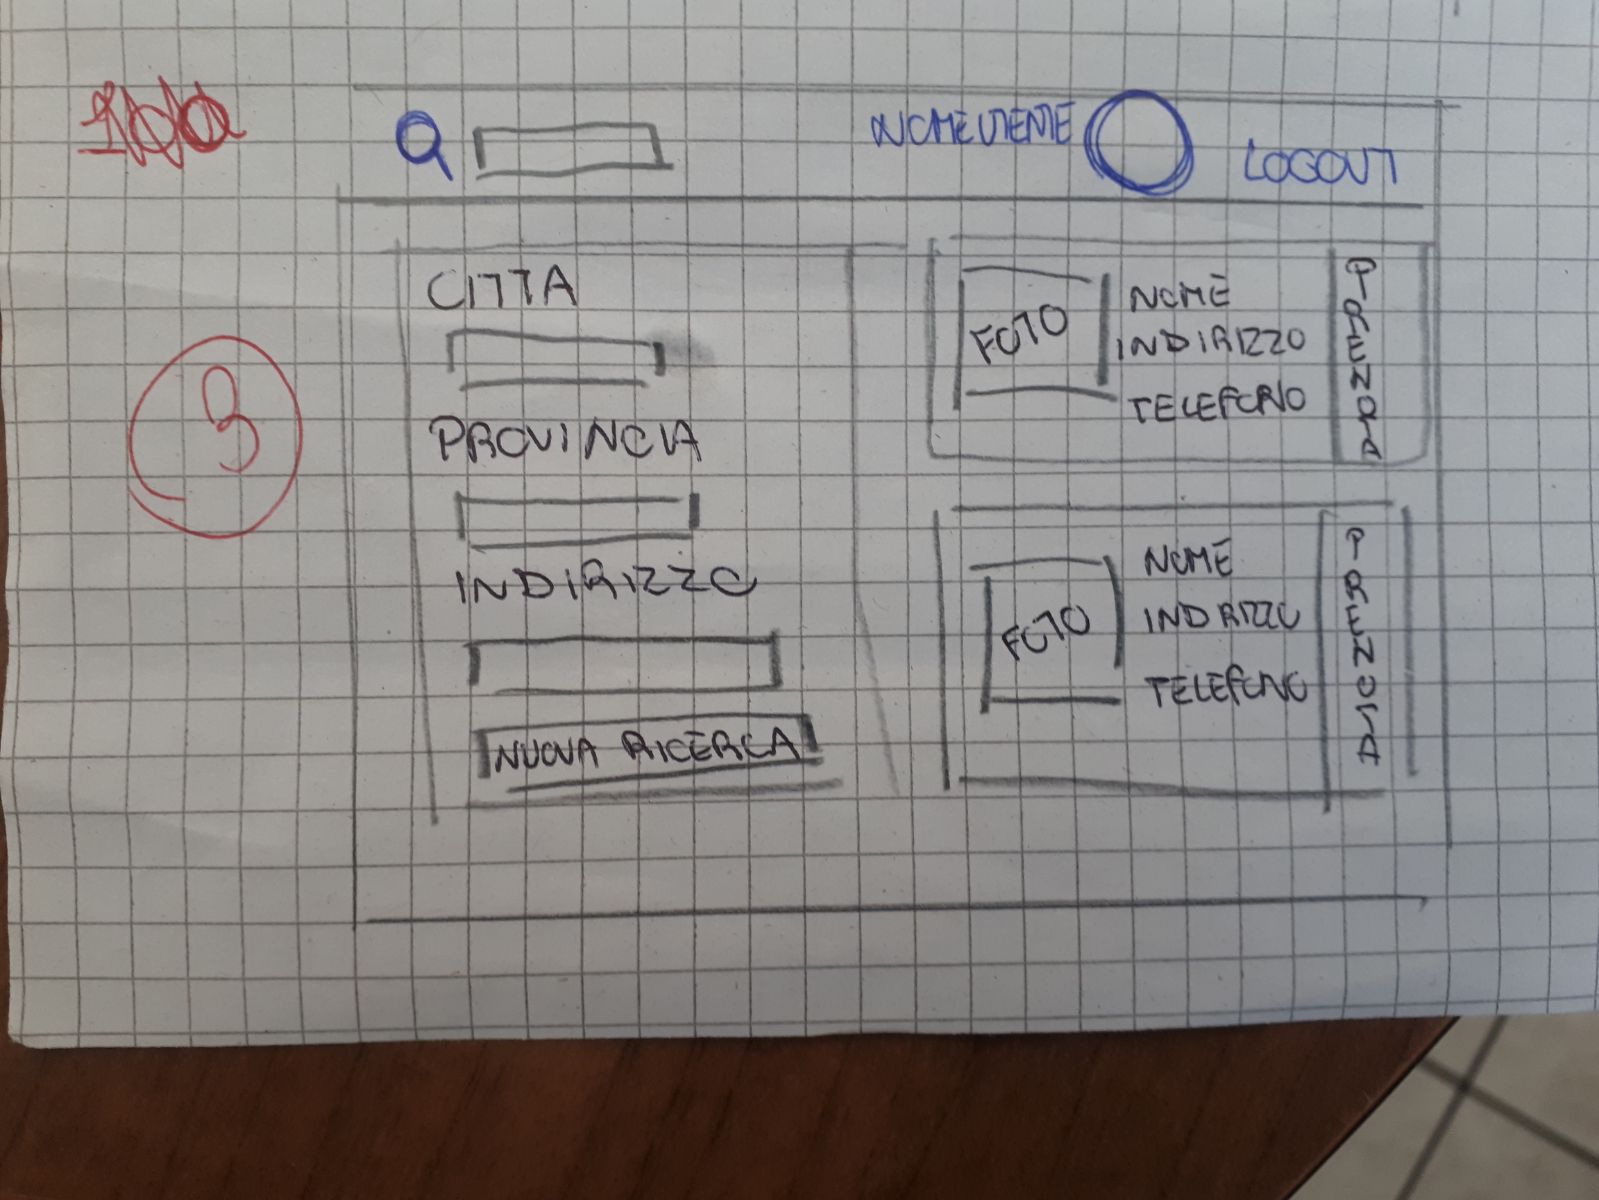 NOMEUTENTE
LOGOUT
3
CITTA
PROVINCIA
INDIRIZZO
NUOVA RICERCA
FOTO
NOME
INDIRIZZO
TELEFONO
PRENOTA
FOTO
NOME
INDIRIZZO
TELEFONO
PRENOTA